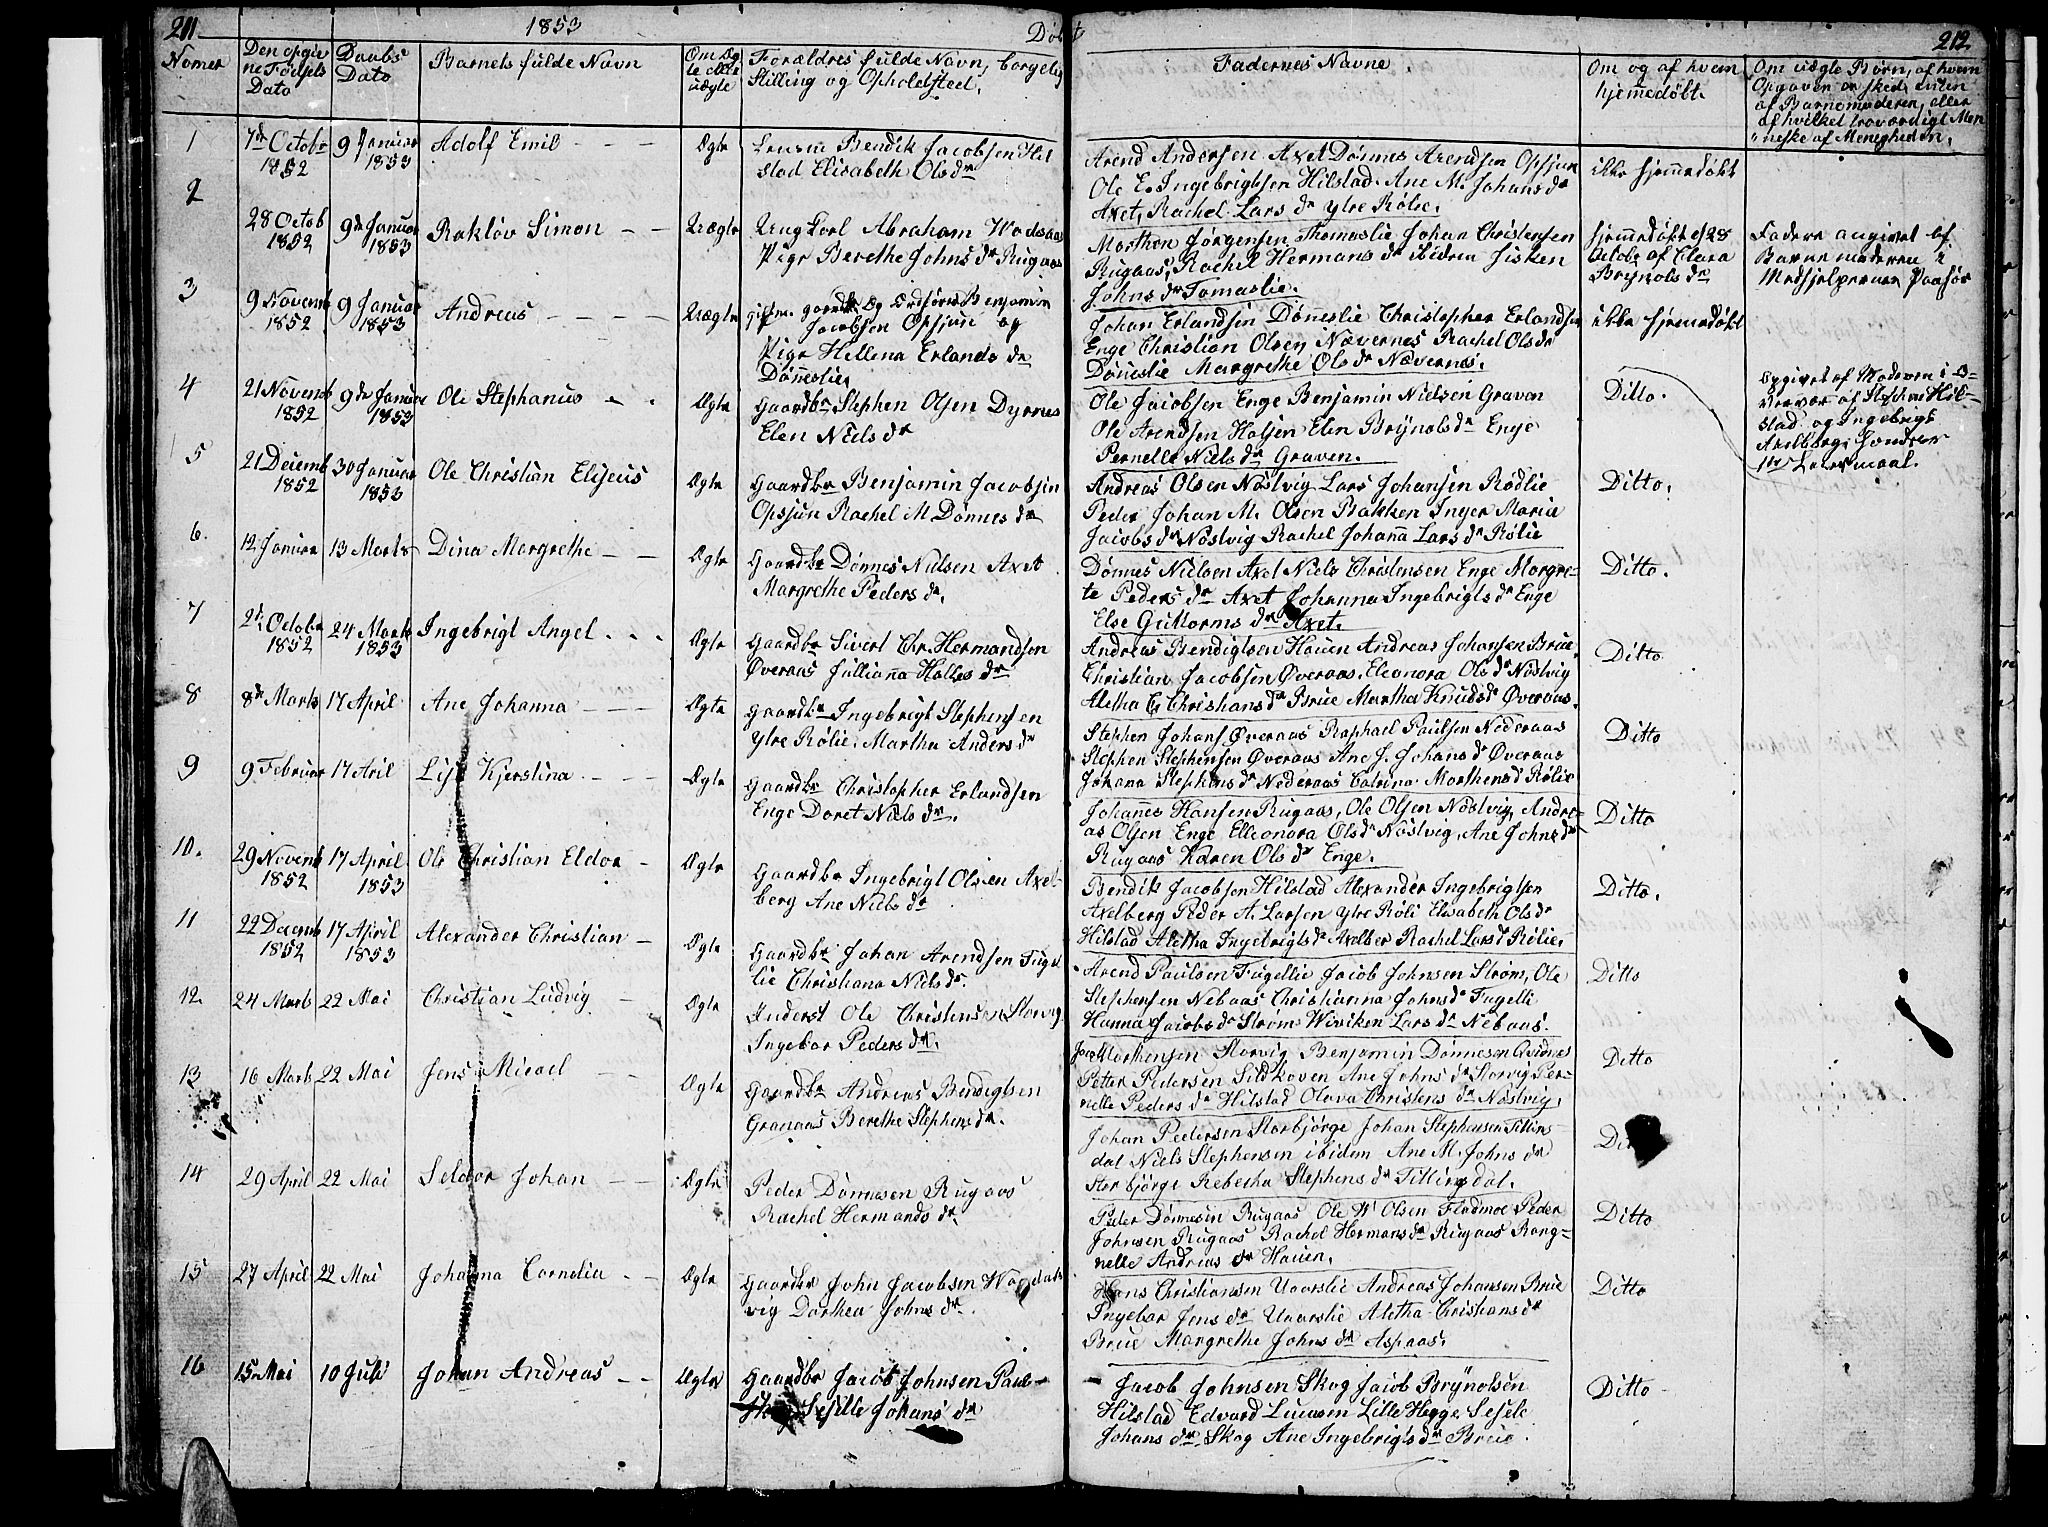 211
1853
Døbt
212
Nomer
Den opgiv
ne Fødsels
Dato
Daabs
Dato
Barnets fulde Navn
Om Æg
te eller
uægte
Forældres fulde Navn, borgelig
Stilling og Opholdsted.
Faddernes Navne
Om og af hvem
hjemmedøbt.
Om uægte Børn, af hvem
Opgaven er sked, enten
af Barnemoderen, eller
af hvilket troværdigt Men
neske af Menegheden.
1
7de Octobr
1852
9 Januar
1853
Adolf Emil
Ægte
Bendik Jacobsen Hil
stad Elisabeth Olsdr
Arend Andersen Axet Dønnes Arendsen Opsjun
Ole E. Ingebrigtsen Hilstad. Ane M. Johansdr
Axet, Rachel Larsdr Ytre Rølie.
ikke hjemmedøbt
2
28 Octob
1852
9de Januar
1853
Rakløv Simon
Uægte
Ung Karl Abraham
Pige Berethe Johnsdr Rugaas
Morthen Jørgensen Thomaslie Johan Christensen
Rugaas, Rachel Hermansdr ibidem Fisken
Johnsdr Tomaslie.
hjemmedøbt d/28
Octobr af Clara
Brynolsdr
Fadere angivet af
Barnemoderen i
Medhjelpernes Paahør
3
9 Novemb
1852
9 Januar
1853
Andreas
Uægte
gaardbr og Ordfører Benjamin
Jacobsen Opsjun og
Pige Hellena Erlandsdr
Dønneslie
Johan Erlandsen Dønneslie Christopher Erlandsen
Enge Christian Olsen Nævernes Rachel Olsdr
Dønneslie Margrethe Olsdr Nævernes.
ikke hjemedøbt
Opgivet af Moderen i O-
verver af Stephen Hil-
stad og Ingebrigt
Axelberg. Hendes
1ste Leiermaal.
4
21 Novemb
1852
9de Januar
1853
Ole Stephanus
Ægte
Gaardbr Stephen Olsen Dyrnes
Elen Nielsdr
Ole Jacobsen Enge Benjamin Nielsen Graven
Ole Arendsen Holsen Elen Brynolsdr Enge
Pernelle Nielsdr Graven.
Ditto.
5
21 Decemb
1852
30 Januar
1853
Ole Christian Eliseus
Ægte
Gaardbr Benjamin Jacobsen
Opsjun Rachel M Dønnesdr
Andreas Olsen Nøstvig Lars Johansen Rødlie
Peder Johan M. Olsen Bakken Inger Maria
Jacobsdr Nøstvig Rachel Johanna Larsdr Rølie
Ditto.
6.
12 Januar
13 Marts
Dina Margrethe
Ægte
Gaardbr Dønnes Nielsen Axet
Margrethe Pedersdr.
Dønnes Nielsen Axet Niels Christensen Enge Margre-
te Pedersdr Axet Johanna Ingebrigtsdr Enge
Else Guttormsdr Axet.
Ditto.
7
Octobr
1852
24 Marts
1853
Ingebrigt Angel
Ægte
Gaardbr Sivert Chr. Hermandsen
Øveraas Jullianna Hallesdr
Andreas Bendigtsen Hauen Andreas Johansen Brue,
Christian Jacobsen Øveraas, Eleonora Olsdr Nøstvig
Aletha E Christiansdr Brue Martha Knudsdr Øveraas.
Ditto
8
8de Marts
17 April
Ane Johanna
Ægte
Gaardbr Ingebrigt Stephensen
Ytre Rølie, Martha Andersdr
Stephen Johans Øveraas Raphael Paulsen Nederaas
Stephen Stephensen Øveraas Ane J. Johansdr Øveraas
Johana Stephensdr Nederaas Catrina Morthensdr Rølie
Ditto
9
9 Februar
17 Aril
Lise Kjerstina
Ægte
Gaardbr Christopher Erlandsen
Enge Doret Nielsdr.
Johannes Hansen Rugaas, Ole Olsen Nøstvig Andre-
as Olsen Enge Elleonora Olsdr Nøstvig, Ane Johnsdr
Rugaas Karen Olsdr Enge.
Ditto
10.
29 Novemb
1852
17 April
1853
Ole Christian Eldor
Ægte
Gaardbr Ingebrigt Olsen Axel-
berg Ane Nielsdr
Bendik Jacobsen Hilstad Alexander Ingebrigtsen
Axelberg Peder A. Larsen Ytre Røli Elisabeth Olsdr
Hilstad Aletha Ingebrigtsdr Axelber Rachel Larsdr Rølie.
Ditto.
11
22 Decemb
1852
17 April
1853
Alexander Christian
Ægte
Gaardbr Johan Arendsen Fugel
lie Christiana Nielsdr.
Arend Paulsen Fugellie Jacob Johnsen Strøm, Ole
Stephensen Nebaas Christianna Johnsdr Fugelli
Hanna Jacobsdr Strøm Wiviken Larsdr Nebaas.
Ditto
12.
24 Marts
22 Mai
Christian Ludvig
Ægte
Inderst Ole Christensen Storvig
Ingebor Pedersdr.
Morthensen Storvig Benjamin Dønnesen Qvidnes
Peter Pedersen Sildhoven Ane Johnsdr Storvig Per-
nelle Pedersdr Hilstad Olava Christensdr Nøstvig.
Ditto
13
16 Marts
22 Mai
Jens Micael
Ægte
Gaardbr Andreas Bendigtsen
Granaas Berethe Stephensdr.
Johan Pedersen Storbjørge Johan Stephensen Tettings-
dal Niels Stephensen ibidem Ane M. Johnsdr
Storbjørge Rebecka Stephensdr Tettingsdal.
14
29 April
22 Mai
Seldor Johan
Ægte
Peder Dønnesen Rugaas
Rachel Hermandsdr
Peder Dønnesen Rugaas Ole W Olsen Flodmoe Peder
Johnsen Rugaas Rachel Hermansdr Rugaas Rang-
nelle Andriasdr Hauen.
Ditto
15
27 April
22 Mai
Johanna Cornelia
Ægte
Gaardbr John Jacobsen
vig Dorthea Johnsdr.
Hans Christiansen Uaarslie Andreas Johansen Brue
Ingebor Jensdr Uaarslie Aletha Christiansdr
Brue Margrethe Johnsdr Aspaas.
Ditto
16
15 Mai
10 Juli
Johan Andreas
Ægte
Gaardbr Jacob Johnsen
Sesille Johansdr
Jacob Johnsen Skog Jacob Brynolsen
Hilstad Edvard Lucasen Lille Hegge Sesele
Johansdr Skog Ane Ingebrigtsdr Brue.
Ditto